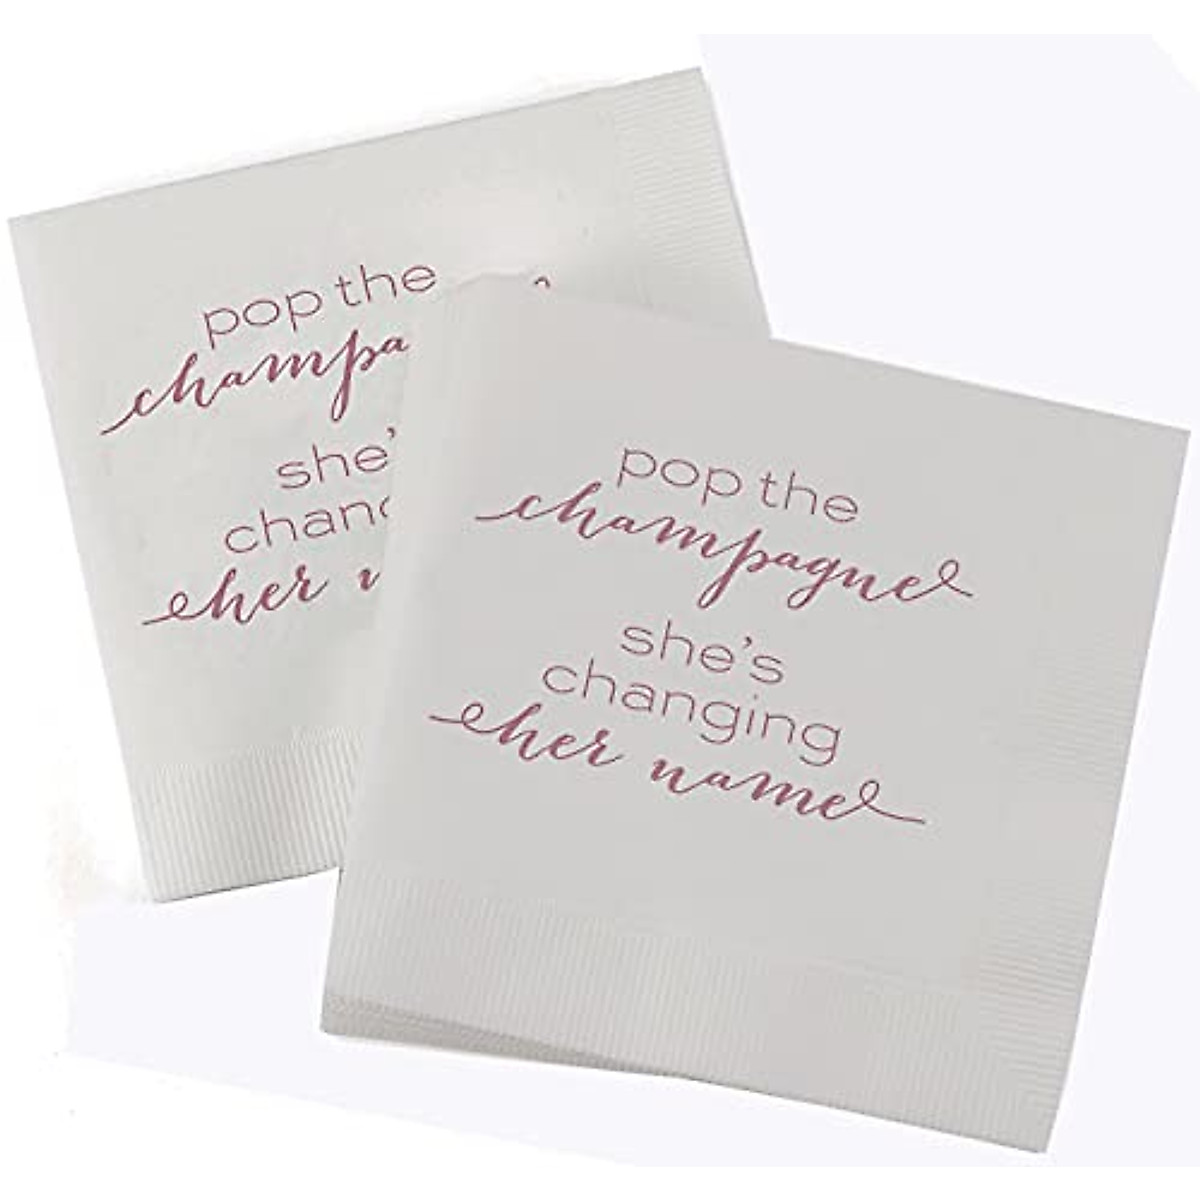 pop the
champa
she'
chang
her n
pop the
champagne
she's
changing
her name